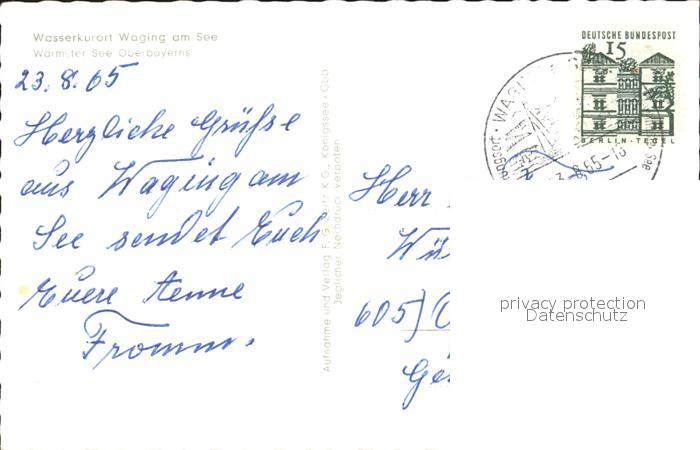 Wasserkurort Waging am See
Wärmster See Oberbayerns
23.8.65
Herzliche Grüße
aus Waging am
See sendet Euch
Euere Aenne
Fromm.
Aufnahme und Verlag F. G. Zeitz K G., Königssee-Obb
Jeglicher Nachdruck verboten
DEUTSCHE BUNDESPOST
15
BERLIN-TEGEL
WAGING
See
8.65-18
Herr
Wü
605
privacy protection
Datenschutz